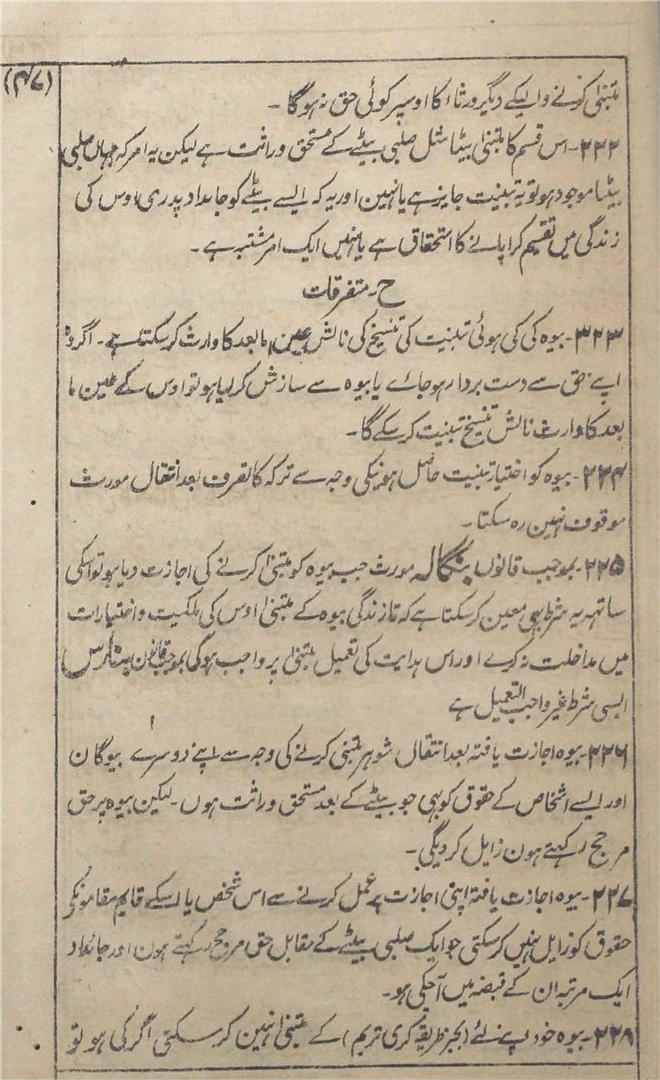 (۷۴)
متبنیٰ کرنے والیکے دیگر ورثاء کا اوسپر کوئی حق نہوگا ۔
۲۲۲ - اس قسم کا متبنیٰ بیٹا مثل صلبی بیٹے کے مستحق وراثت ہے لیکن یہ امر کہ جہاں صلبی
بیٹا موجود ہو تو یہ تبنیت جایز ہے یا نہین اور یہ کہ ایسے بیٹے کو جائداد پدری اوس کی
زندگی میں تقسیم کرا پانے کا استحقاق ہے یا نہیں ایک امر مشتبہ ہے ۔
ح ۔ متفرقات
۳۲۳ - بیوہ کی کی ہوئی تبنیت کی تنسیخ کی نالش عین ما بعد کا وارث کرسکتا ہے ۔ اگر وہ
اپنے حق سے دست بردار ہو جائے یا بیوہ سے سازش کر لیا ہو تو اوس کے عین ما
بعد کا وارث نالش تنسیخ تبنیت کر سکے گا ۔
۲۲۴ - بیوہ کو اختیار تبنیت حاصل ہونیکی وجہ سے ترکہ کا تصرف بعد انتقال مورث
موقوف نہین رہ سکتا ۔
۲۲۵ - بموجب قانون بنگالہ مورث جب بیوہ کو متبنیٰ کرنے کی اجازت دیا ہو تو اسکی
ساتھہ یہ شرط بھی معین کرسکتا ہے کہ تا زندگی بیوہ کے متبنیٰ اوس کی ملکیت و اختیارات
میں مداخلت نہ کرے اور اس ہدایت کی تعمیل متبنیٰ پر واجب ہوگی بموجب قانون بنارس
ایسی شرط غیر واجب التعمیل ہے
۲۲۶ - بیوہ اجازت یافتہ بعد انتقال شوہر متبنی کرنے کی وجہ سے اپنے دوسرے بیوگان
اور ایسے اشخاص کے حقوق کو بھی جو بیٹے کے بعد مستحق وراثت ہوں ۔ لیکن بیوہ پر حق
مرجح رکہتے ہون زایل کردیگی ۔
۲۲۷ - بیوہ اجازت یافتہ اپنی اجازت پر عمل کرنے سے اس شخص یا اسکے قایم مقامونکی
حقوق کو زایل نہیں کرسکتی جو ایک صلبی بیٹے کے مقابل حق مرجح رکہتے ہون اور جائداد
ایک مرتبہ ان کے قبضہ میں آچکی ہو ۔
۲۲۸ - بیوہ خود اپنے لئے (بجز طریقہ کری تریم) کے متبنیٰ نہین کرسکتی اگر کی ہو تو